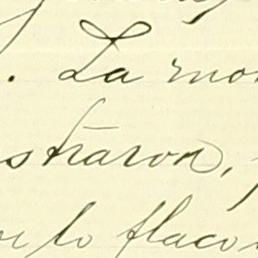 . La mo
straron,
lo flaco